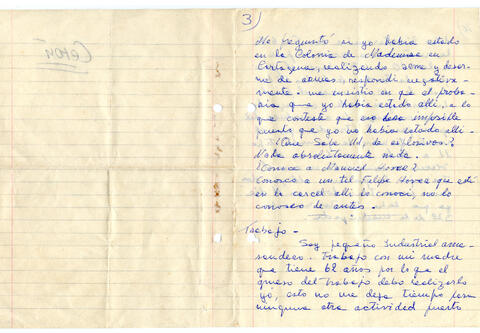 3
Me preguntó si yo habia estado
en la Colonia de Mademsa en
Cartagena, realizando arme y desar-
me de armas, respondi negativa-
mente. me insistio en que el proba-
ria que yo habia estado alli, a lo
que conteste que eso era imposible
puesto que yo no habia estado alli.
¿Que Sabe Ud, de explosivos?
Nada absolutamente nada.
¿Conoce a Manuel
Conosco a un tal Felipe que esta
en la carcel alli lo conoci, no lo
conosco de antes.
Trabajo -
Soy pequeño Industrial
Trabajo con mi madre
que tiene 62 años por lo que el
grueso del Trabajo debo realizarlo
yo, esto no me deja tiempo para
ninguna otra actividad puesto